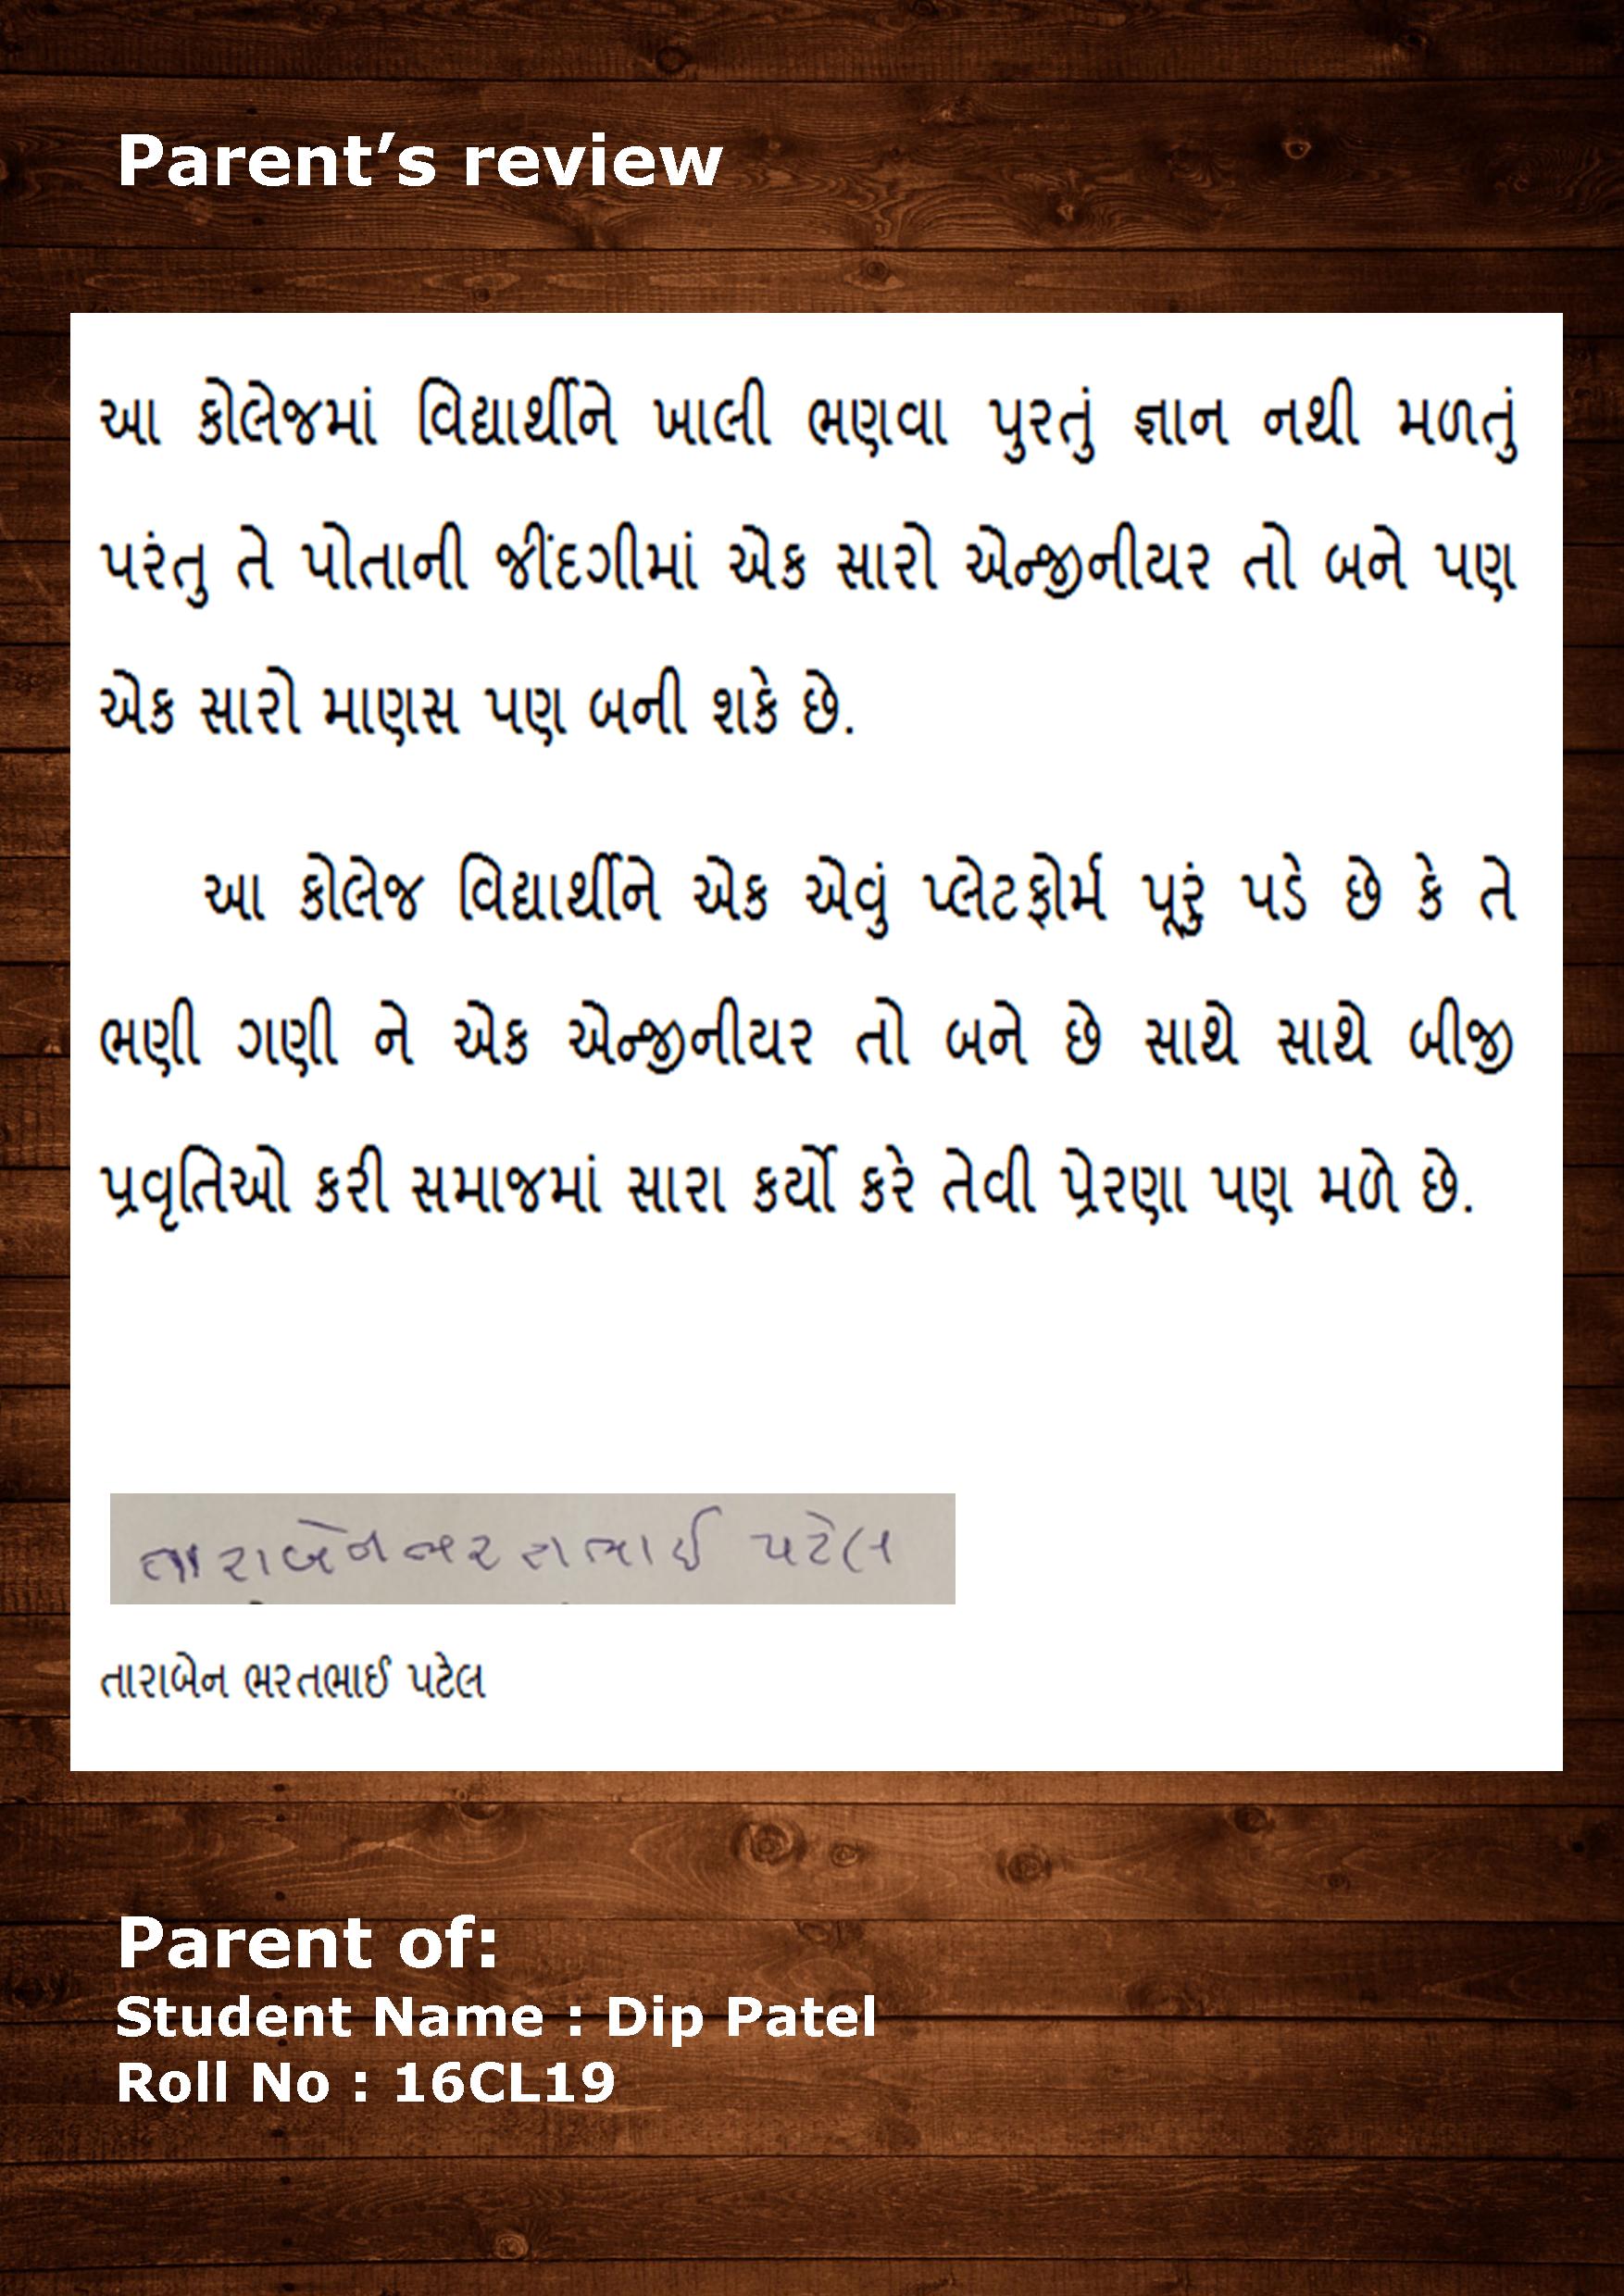 Parent’s review
આ કોલેજમાં વિદ્યાર્થીને ખાલી ભણવા પુરતું જ્ઞાન નથી મળતું
પરંતુ તે પોતાની જીંદગીમાં એક સારો એન્જીનીયર તો બને પણ
એક સારો માણસ પણ બની શકે છે.
આ કોલેજ વિદ્યાર્થીને એક એવું પ્લેટફોર્મ પૂરું પડે છે કે તે
ભણી ગણી ને એક એન્જીનીયર તો બને છે સાથે સાથે બીજી
પ્રવૃતિઓ કરી સમાજમાં સારા કર્યો કરે તેવી પ્રેરણા પણ મળે છે.
તારાબેન ભરતભાઈ પટેલ
તારાબેન ભરતભાઈ પટેલ
Parent of:
Student Name : Dip Patel
Roll No : 16CL19